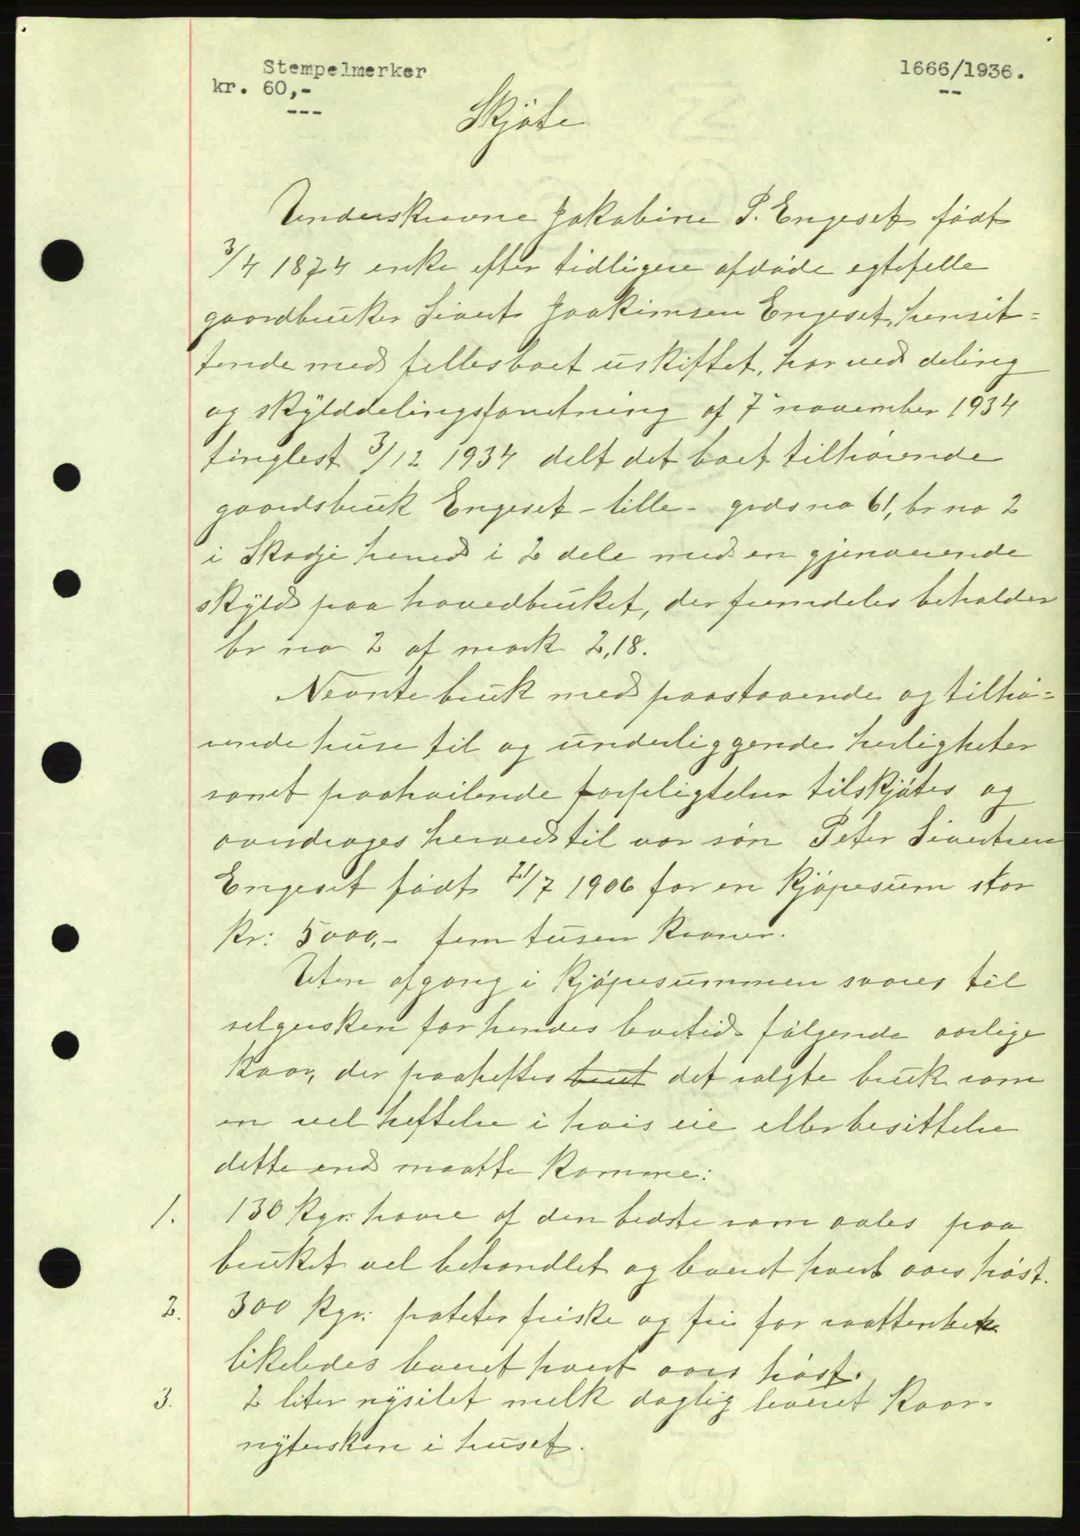 Stempelmerker
kr. 60,-
---
1666/1936.
--
Skjøte
Underskrevne Jakobine P. Engeset født
3/4 1874 enke efter tidligere afdøde egtefelle
gaardbruker Sivert Joakimsen Engeset, hensit-
tende med fellesboet uskiftet, har ved deling
og skylddelingsforretning af 7 november 1934
tinglest 3/12 1934 delt det boet tilhørende
gaardsbruk Engeset - lille - gards no 61, br no 2
i Skodje herred i 2 dele med en gjenværende
skyld paa hovedbruket, der fremdeles beholder
br no 2 af mark 2,18.
Nevnte bruk med paastaaende og tilhø-
rende huse til og underliggende herligheter
samt paahvilende forpligtelser tilskjøtes og
overdrages herved til vor søn Peter Sivertsen
Engeset født 21/7 1906 for en kjøpesum stor
kr: 5000,- fem tusen kroner.
Uten afgang i kjøpesummen svares til
selgersken for hendes levetid følgende aarlige
kaar, der paaheftes det solgte bruk som
en vel heftelse i hvis eie eller besittelse
dette end maatte komme:
1. 130 kgr. havre af den bedste som avles paa
bruket vel behandlet og levert hvert aars høst.
2. 300 kgr. poteter friske og fri for
likeledes levert hvert aars høst.
3. 2 liter nysilet melk daglig levert kaar-
nytersken i huset.